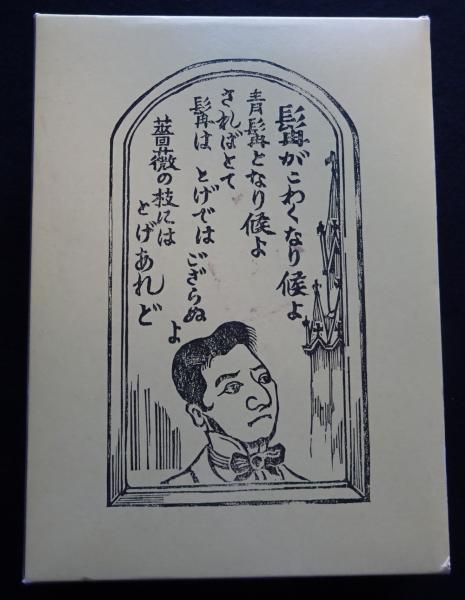 髯がこわくなり候よ
青髯となり候よ
さればとて
髯は とげではござらぬ
よ
薔薇の枝には
とげあれど